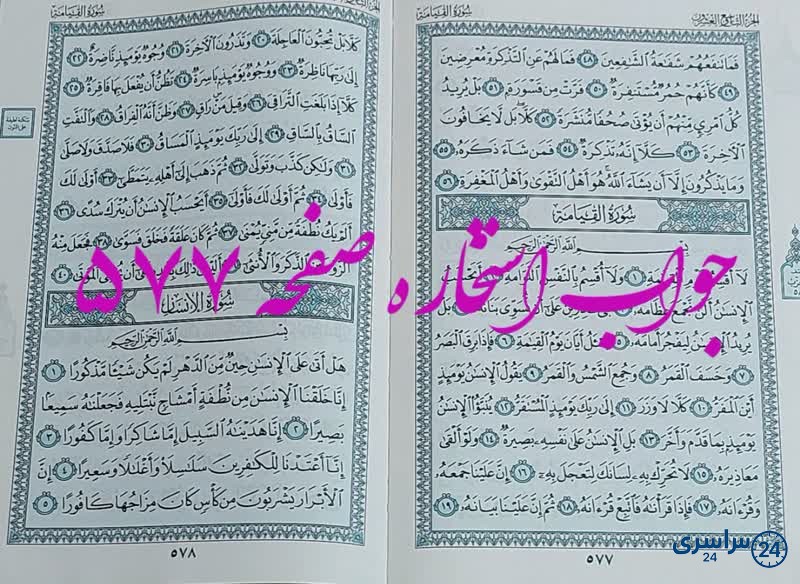 سُورَةُ القِيَامَةِ
الجُزْءُ التَّاسِعُ وَالعِشْرُونَ
فَمَا تَنفَعُهُمْ شَفَاعَةُ الشَّافِعِينَ ٤٨ فَمَا لَهُمْ عَنِ التَّذْكِرَةِ مُعْرِضِينَ
٤٩ كَأَنَّهُمْ حُمُرٌ مُّسْتَنفِرَةٌ ٥٠ فَرَّتْ مِن قَسْوَرَةٍ ٥١ بَلْ يُرِيدُ
كُلُّ امْرِئٍ مِّنْهُمْ أَن يُؤْتَىٰ صُحُفًا مُّنَشَّرَةً ٥٢ كَلَّا بَل لَّا يَخَافُونَ
الْآخِرَةَ ٥٣ كَلَّا إِنَّهُ تَذْكِرَةٌ ٥٤ فَمَن شَاءَ ذَكَرَهُ ٥٥
وَمَا يَذْكُرُونَ إِلَّا أَن يَشَاءَ اللَّهُ هُوَ أَهْلُ التَّقْوَىٰ وَأَهْلُ الْمَغْفِرَةِ ٥٦
سُورَةُ القِيَامَةِ
بِسْمِ اللَّهِ الرَّحْمَٰنِ الرَّحِيمِ
لَا أُقْسِمُ ١ وَلَا أُقْسِمُ بِالنَّفْسِ
الْإِنسَانُ أَلَّن نَّجْمَعَ عِظَامَهُ ٣ عَلَىٰ أَن نُّسَوِّيَ بَنَانَهُ ٤ بَلْ
يُرِيدُ الْإِنسَانُ لِيَفْجُرَ أَمَامَهُ ٥ أَيَّانَ يَوْمُ الْقِيَامَةِ ٦ فَإِذَا بَرِقَ الْبَصَرُ
٧ وَخَسَفَ الْقَمَرُ ٨ وَجُمِعَ الشَّمْسُ وَالْقَمَرُ ٩ يَقُولُ الْإِنسَانُ يَوْمَئِذٍ
أَيْنَ الْمَفَرُّ ١٠ كَلَّا لَا وَزَرَ ١١ إِلَىٰ رَبِّكَ يَوْمَئِذٍ الْمُسْتَقَرُّ ١٢ يُنَبَّأُ الْإِنسَانُ
يَوْمَئِذٍ بِمَا قَدَّمَ وَأَخَّرَ ١٣ بَلِ الْإِنسَانُ عَلَىٰ نَفْسِهِ بَصِيرَةٌ ١٤ وَلَوْ أَلْقَىٰ
مَعَاذِيرَهُ ١٥ لَا تُحَرِّكْ بِهِ لِسَانَكَ لِتَعْجَلَ بِهِ ١٦ إِنَّ عَلَيْنَا جَمْعَهُ
وَقُرْآنَهُ ١٧ فَإِذَا قَرَأْنَاهُ فَاتَّبِعْ قُرْآنَهُ ١٨ ثُمَّ إِنَّ عَلَيْنَا بَيَانَهُ ١٩
٥٧٧
سُورَةُ القِيَامَةِ
كَلَّا بَلْ تُحِبُّونَ الْعَاجِلَةَ ٢٠ وَتَذَرُونَ الْآخِرَةَ ٢١ وُجُوهٌ يَوْمَئِذٍ نَّاضِرَةٌ ٢٢
إِلَىٰ رَبِّهَا نَاظِرَةٌ ٢٣ وَوُجُوهٌ يَوْمَئِذٍ بَاسِرَةٌ ٢٤ تَظُنُّ أَن يُفْعَلَ بِهَا فَاقِرَةٌ ٢٥
كَلَّا إِذَا بَلَغَتِ التَّرَاقِيَ ٢٦ وَقِيلَ مَنْ رَاقٍ ٢٧ وَظَنَّ أَنَّهُ الْفِرَاقُ ٢٨ وَالْتَفَّتِ
السَّاقُ بِالسَّاقِ ٢٩ إِلَىٰ رَبِّكَ يَوْمَئِذٍ الْمَسَاقُ ٣٠ فَلَا صَدَّقَ وَلَا صَلَّىٰ
٣١ وَلَٰكِن كَذَّبَ وَتَوَلَّىٰ ٣٢ ثُمَّ ذَهَبَ إِلَىٰ أَهْلِهِ يَتَمَطَّىٰ ٣٣ أَوْلَىٰ لَكَ
فَأَوْلَىٰ ٣٤ ثُمَّ أَوْلَىٰ لَكَ فَأَوْلَىٰ ٣٥ أَيَحْسَبُ الْإِنسَانُ أَن يُتْرَكَ سُدًى ٣٦
أَلَمْ يَكُ نُطْفَةً مِّن مَّنِيٍّ يُمْنَىٰ ٣٧ ثُمَّ كَانَ عَلَقَةً فَخَلَقَ فَسَوَّىٰ ٣٨ فَجَعَلَ مِنْهُ
الذَّكَرَ وَالْأُنثَىٰ الْمَوْتَىٰ ٤٠
سُورَةُ الإِنسَانِ
بِسْمِ اللَّهِ الرَّحْمَٰنِ الرَّحِيمِ
هَلْ أَتَىٰ عَلَى الْإِنسَانِ حِينٌ مِّنَ الدَّهْرِ لَمْ يَكُن شَيْئًا مَّذْكُورًا ١
إِنَّا خَلَقْنَا الْإِنسَانَ مِن نُّطْفَةٍ أَمْشَاجٍ نَّبْتَلِيهِ فَجَعَلْنَاهُ سَمِيعًا
بَصِيرًا ٢ إِنَّا هَدَيْنَاهُ السَّبِيلَ إِمَّا شَاكِرًا وَإِمَّا كَفُورًا ٣
إِنَّا أَعْتَدْنَا لِلْكَافِرِينَ سَلَاسِلَا وَأَغْلَالًا وَسَعِيرًا ٤ إِنَّ
الْأَبْرَارَ يَشْرَبُونَ مِن كَأْسٍ كَانَ مِزَاجُهَا كَافُورًا ٥
٥٧٨
جواب استخاره صفحه ۵۷۷
سراسری 24
24